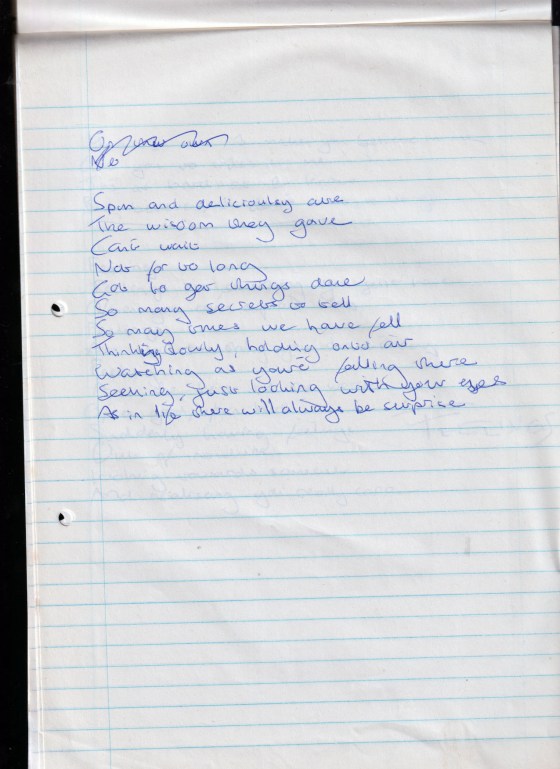 No
Spun and deliciouley
The wisdom they gave
Can't wait
Not for to long
Got to get things done
So many secrets to tell
So many times we have fell
Thinking slowly, holding onto air
Watching as you're falling there
Seeking, just looking with your eyes
As in life there will always be surprise